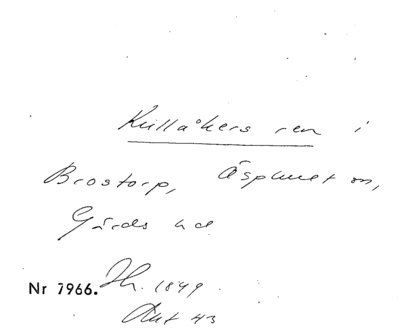 Kullåkers ren i
Brostorp, Äsphult sn,
Gärds hd
Nr 7966. Hh. 1849
Akt 43